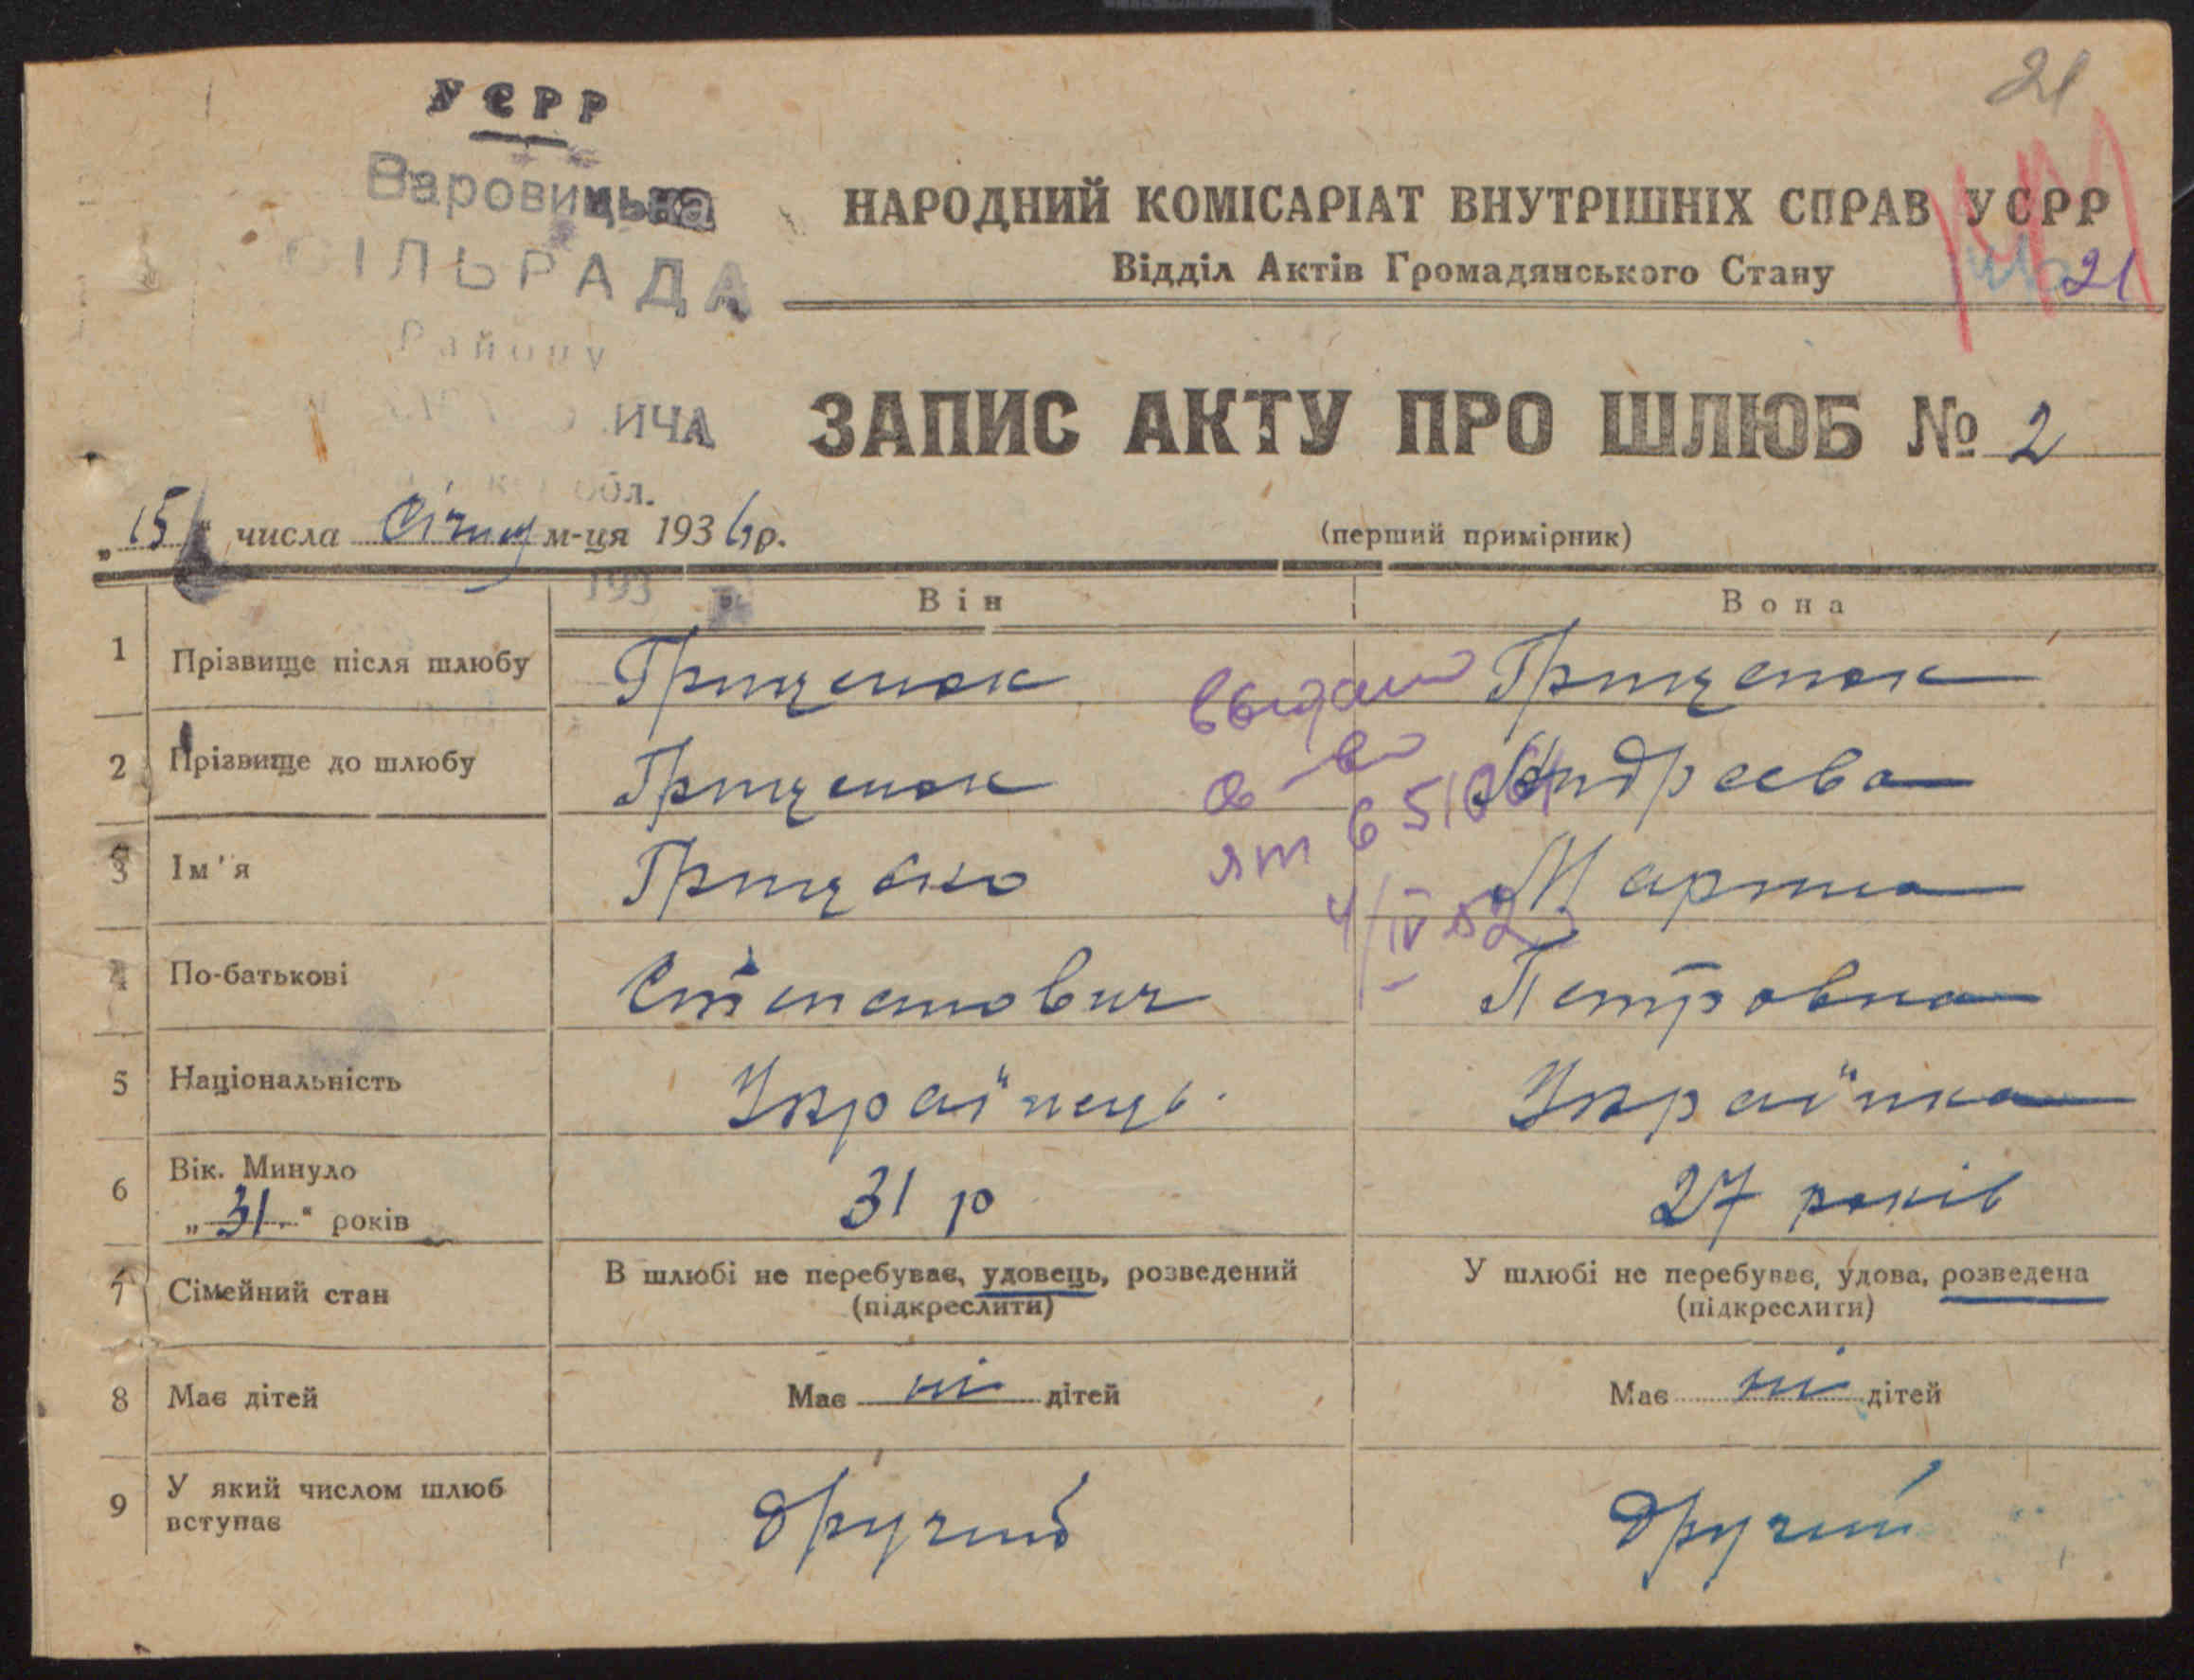 21
УСРР
Варовицька
СІЛЬРАДА
Району
ИЧА
обл.
193
НАРОДНИЙ КОМІСАРІАТ ВНУТРІШНІХ СПРАВ УСРР
Відділ Актів Громадянського Стану
21
ЗАПИС АКТУ ПРО ШЛЮБ № 2
„15" числа Січня м-ця 1936 р.
(перший примірник)
Він Вона
1 Прізвище після шлюбу Грищенок Грищенок
2 Прізвище до шлюбу Грищенок Андреева
3 Ім'я Грицько Мартина
4 По-батькові Степанович Петровна
5 Національність Українець. Українка
6 Вік. Минуло „31." років 31 р 27 років
7 Сімейний стан В шлюбі не перебуває, удовець, розведений У шлюбі не перебуває, удова, розведена
(підкреслити) (підкреслити)
8 Має дітей Має ні дітей Має ні дітей
9 У який числом шлюб вступає другий другий
4/IV 52